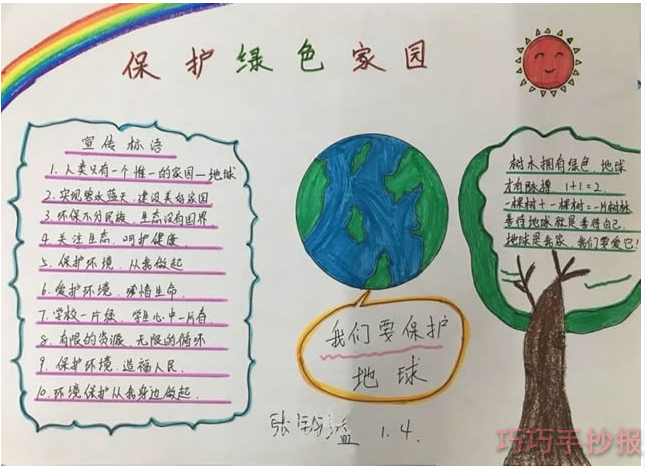 保护绿色家园
宣传标语
1.人类只有一个惟一的家园—地球
2.实现碧水蓝天,建设美好家园
3.环保不分民族,生态没有国界
4.关注生态,呵护健康
5.保护环境,从我做起
6.爱护环境,珍惜生命.
7.学校一片绿,学生心中一片春
8.有限的资源,无限的循环
9.保护环境,造福人民.
10.环境保护从我身边做起.
我们要保护
地球
树木拥有绿色,地球
才有脉搏 1+1=2.
一棵树+一棵树=一片树林
善待地球就是善待自己.
地球是我家,我们要爱它!
1.4.
巧巧手抄报